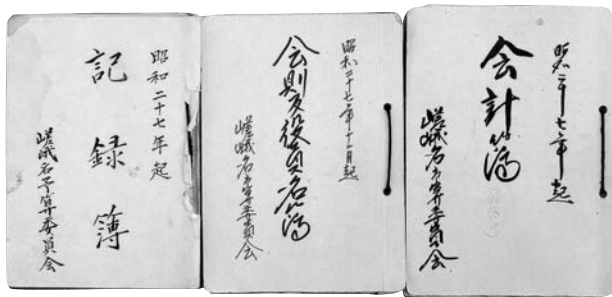 昭和二十七年起
会計簿
嵯峨名委員会
昭和二十七年十一月起
会則及役員名簿
嵯峨名委員会
昭和二十七年起
記録簿
嵯峨名委員会